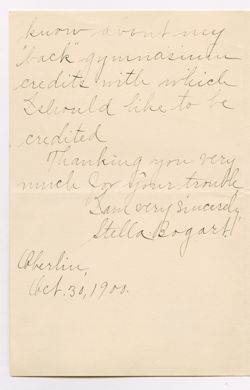 know about my
"back" gymnasium
credits with which
I should like to be
credited
Thanking you very
much for your trouble,
I am very sincerely,
Stella Bogart.
Oberlin,
Oct. 30, 1900.